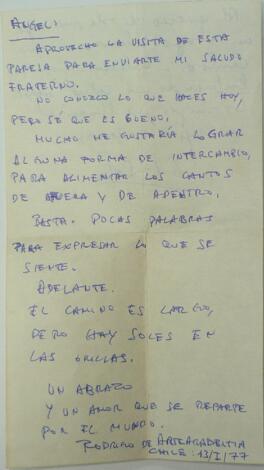 ANGEL:
APROVECHO LA VISITA DE ESTA
PAREJA PARA ENVIARTE MI SALUDO
FRATERNO.
NO CONOZCO LO QUE HACES HOY,
PERO SÉ QUE ES BUENO.
MUCHO ME GUSTARÍA LOGRAR
ALGUNA FORMA DE INTERCAMBIO,
PARA ALIMENTAR LOS CANTOS
DE AFUERA Y DE ADENTRO.
BASTA. POCAS PALABRAS
PARA EXPRESAR LO QUE SE
SIENTE.
ADELANTE.
EL CAMINO ES LARGO,
PERO HAY SOLES EN
LAS ORILLAS.
UN ABRAZO
Y UN AMOR QUE SE REPARTE
POR EL MUNDO.
RODRIGO DE
CHILE: 13/I/77